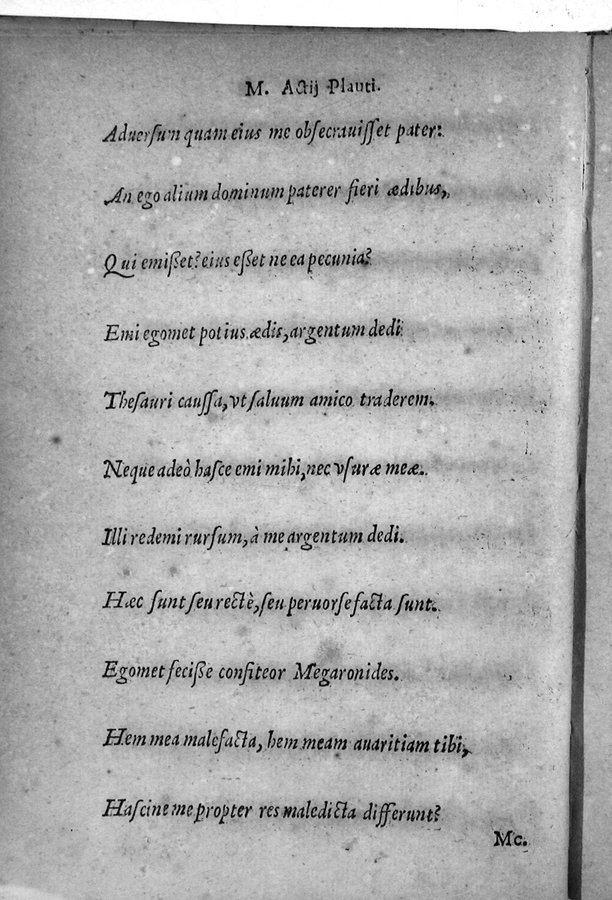 M. Actij Plauti.
Aduersum quam eius me obsecrauisset pater:
An ego alium dominum paterer fieri ædibus,
Qui emißet? eius eßet ne ea pecunia?
Emi egomet potius ædis, argentum dedi
Thesauri caussa, vt saluum amico traderem.
Neque adeò hasce emi mihi, nec vsuræ meæ.
Illi redemi rursum, à me argentum dedi.
Hæc sunt seu rectè, seu peruorse facta sunt.
Egomet feciße confiteor Megaronides.
Hem mea malefacta, hem meam auaritiam tibi,
Hascine me propter res maledicta differunt?
Mc.